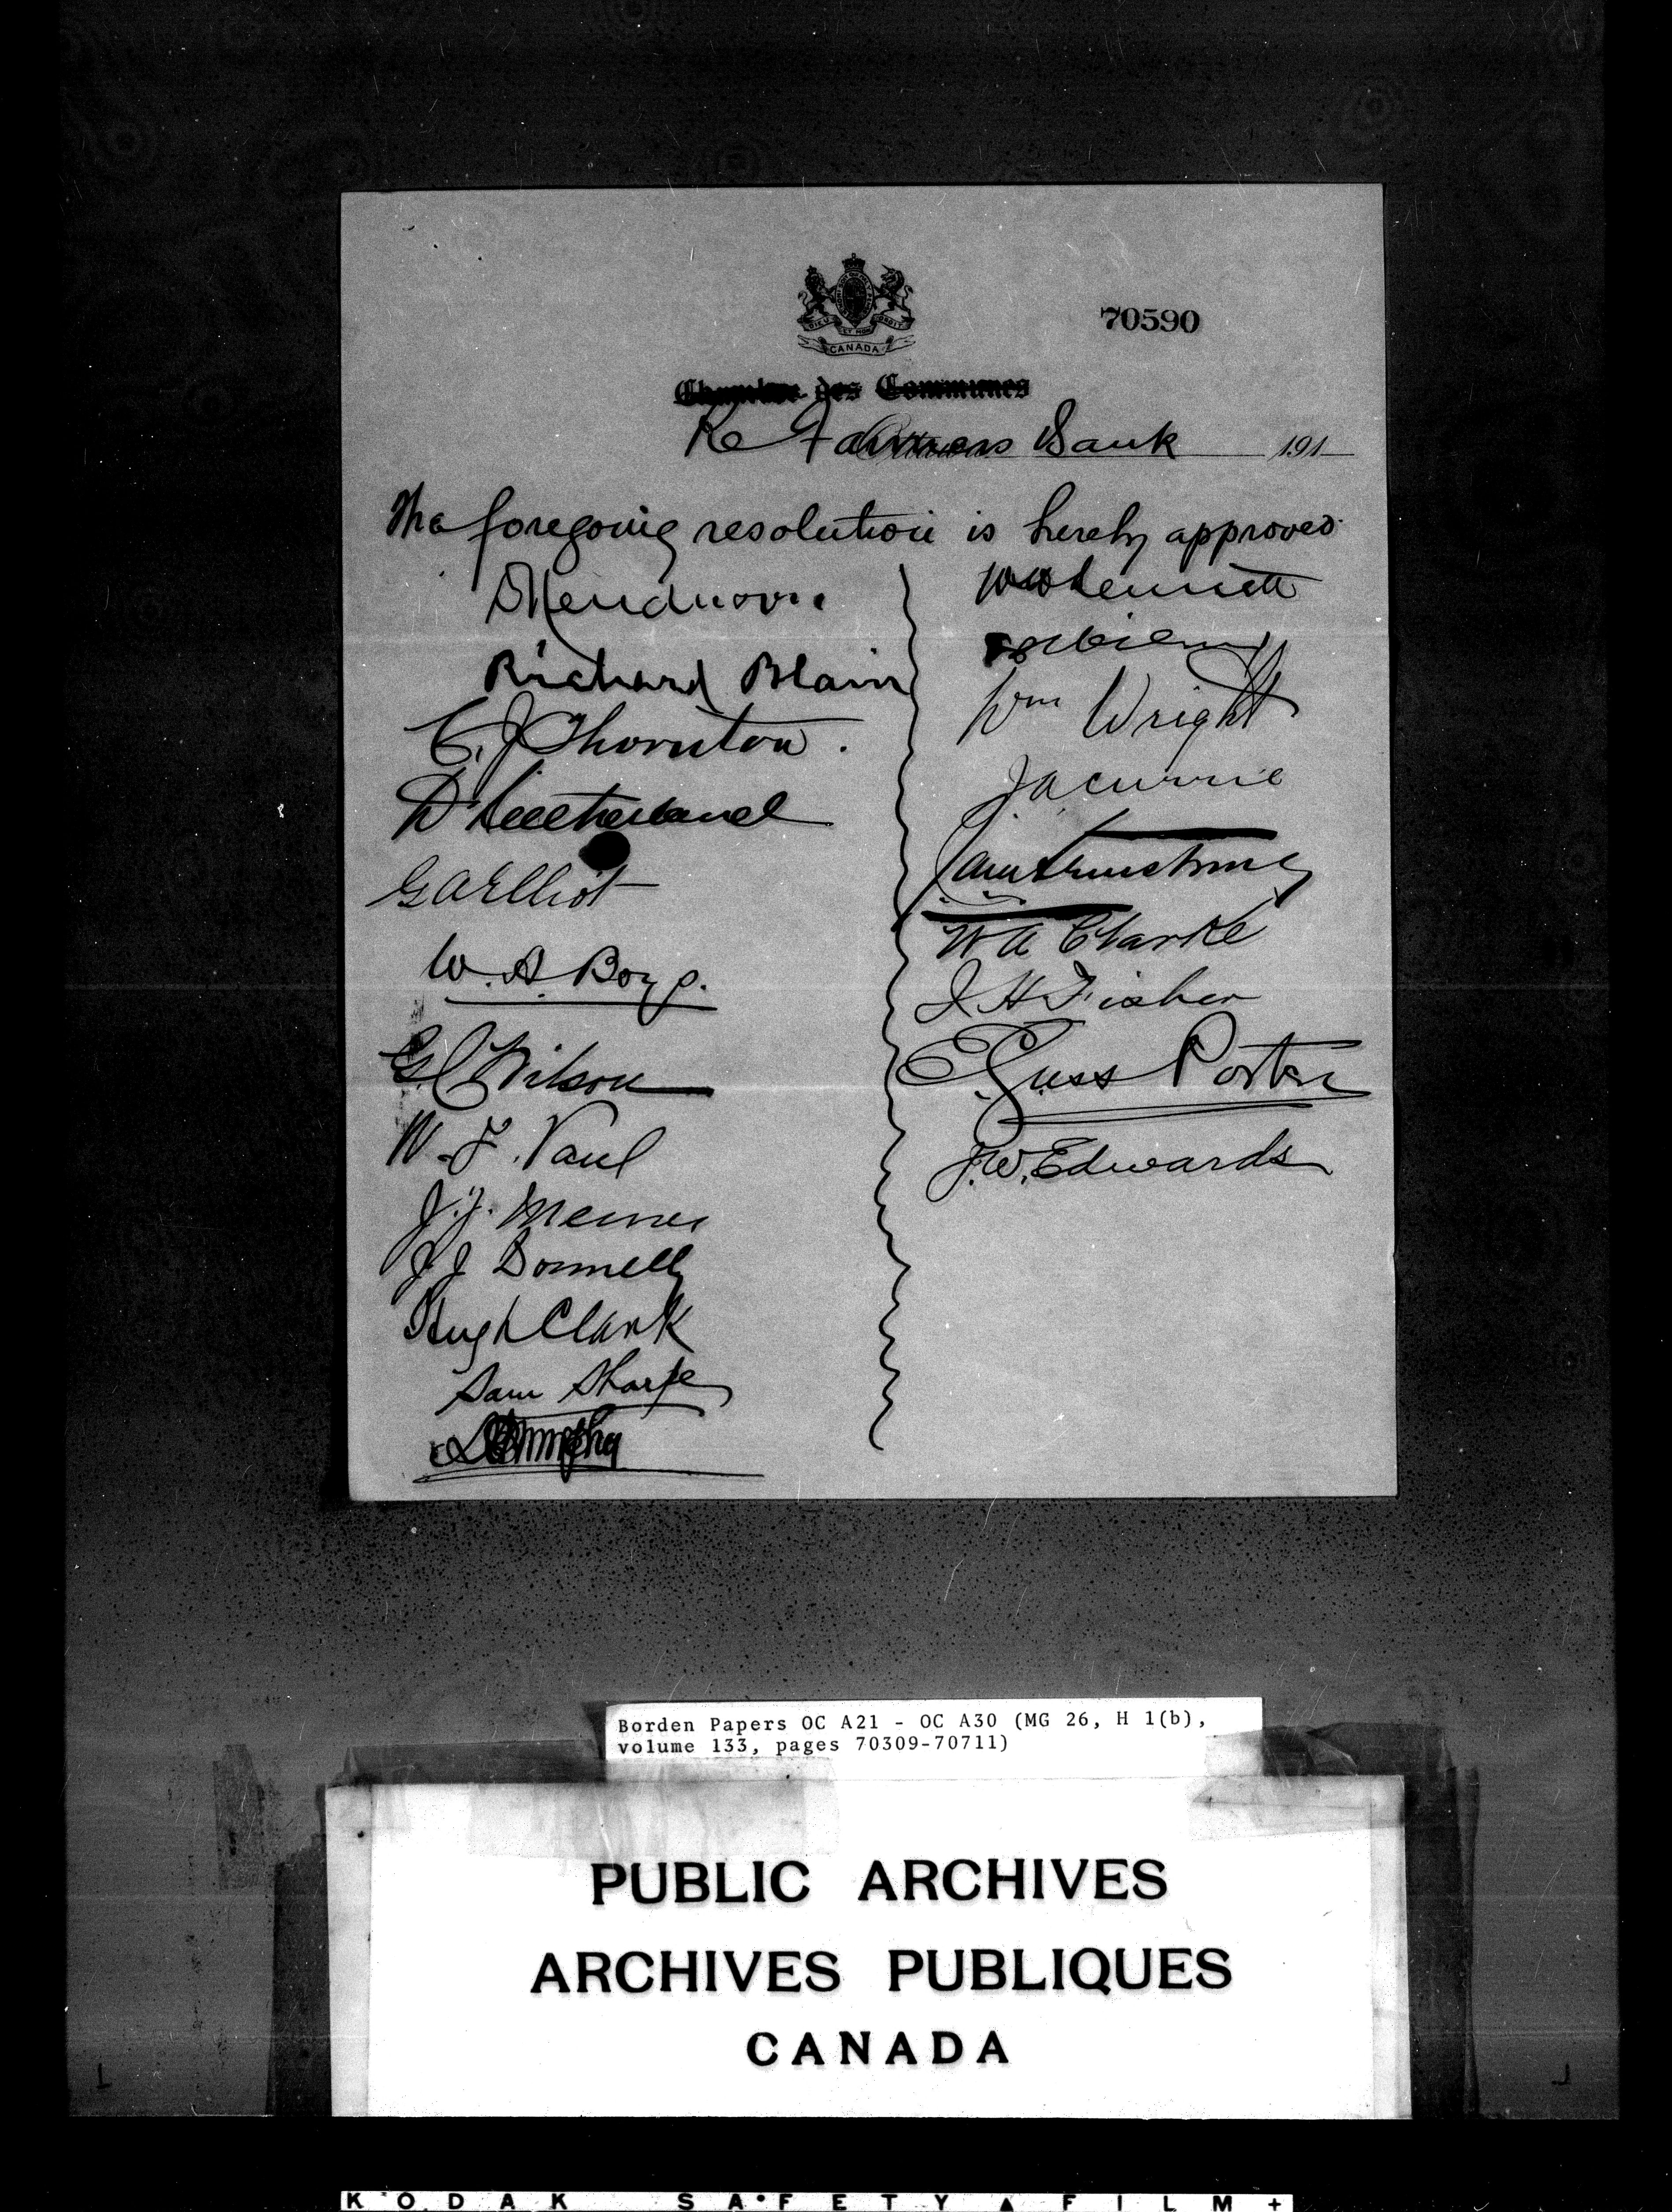 DIEU ET MON DROIT
CANADA
70590
Chambre des Communes
Re Farmers Bank 191
The foregoing resolution is hereby approved
Richard Blain
C. J. Thornton.
D Sutherland
G A Elliot
W. A. Boys.
G C Wilson
W. F. Paul
J. J. Merner
J J Donnelly
Hugh Clark
Sam Sharpe
W H Bennett
Wm Wright
J A Currie
J E Armstrong
W A Clarke
J H Fisher
E. Guss Porter
J. W. Edwards
Borden Papers OC A21 - OC A30 (MG 26, H 1(b),
volume 133, pages 70309-70711)
PUBLIC ARCHIVES
ARCHIVES PUBLIQUES
CANADA
KODAK SAFETY FILM